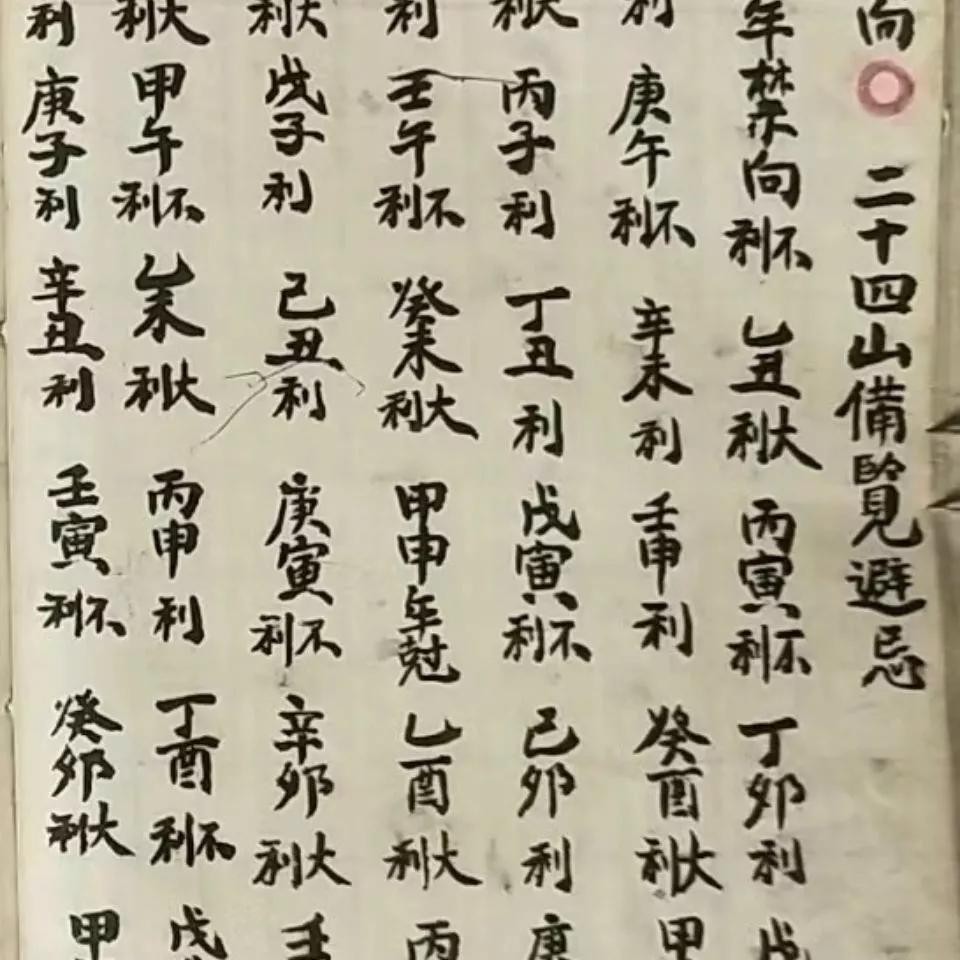 向 二十四山備覽避忌
年禁向不利 乙丑大利 丙寅不利 丁卯利 戊
利 庚午不利 辛未利 壬申利 癸酉大利 甲
大利 丙子利 丁丑利 戊寅不利 己卯利 庚
利 壬午不利 癸未大利 甲申年尅 乙酉大利 丙
大利 戊子利 己丑利 庚寅不利 辛卯大利 壬
大利 甲午不利 乙未大利 丙申利 丁酉不利 戊
利 庚子利 辛丑利 壬寅不利 癸卯大利 甲